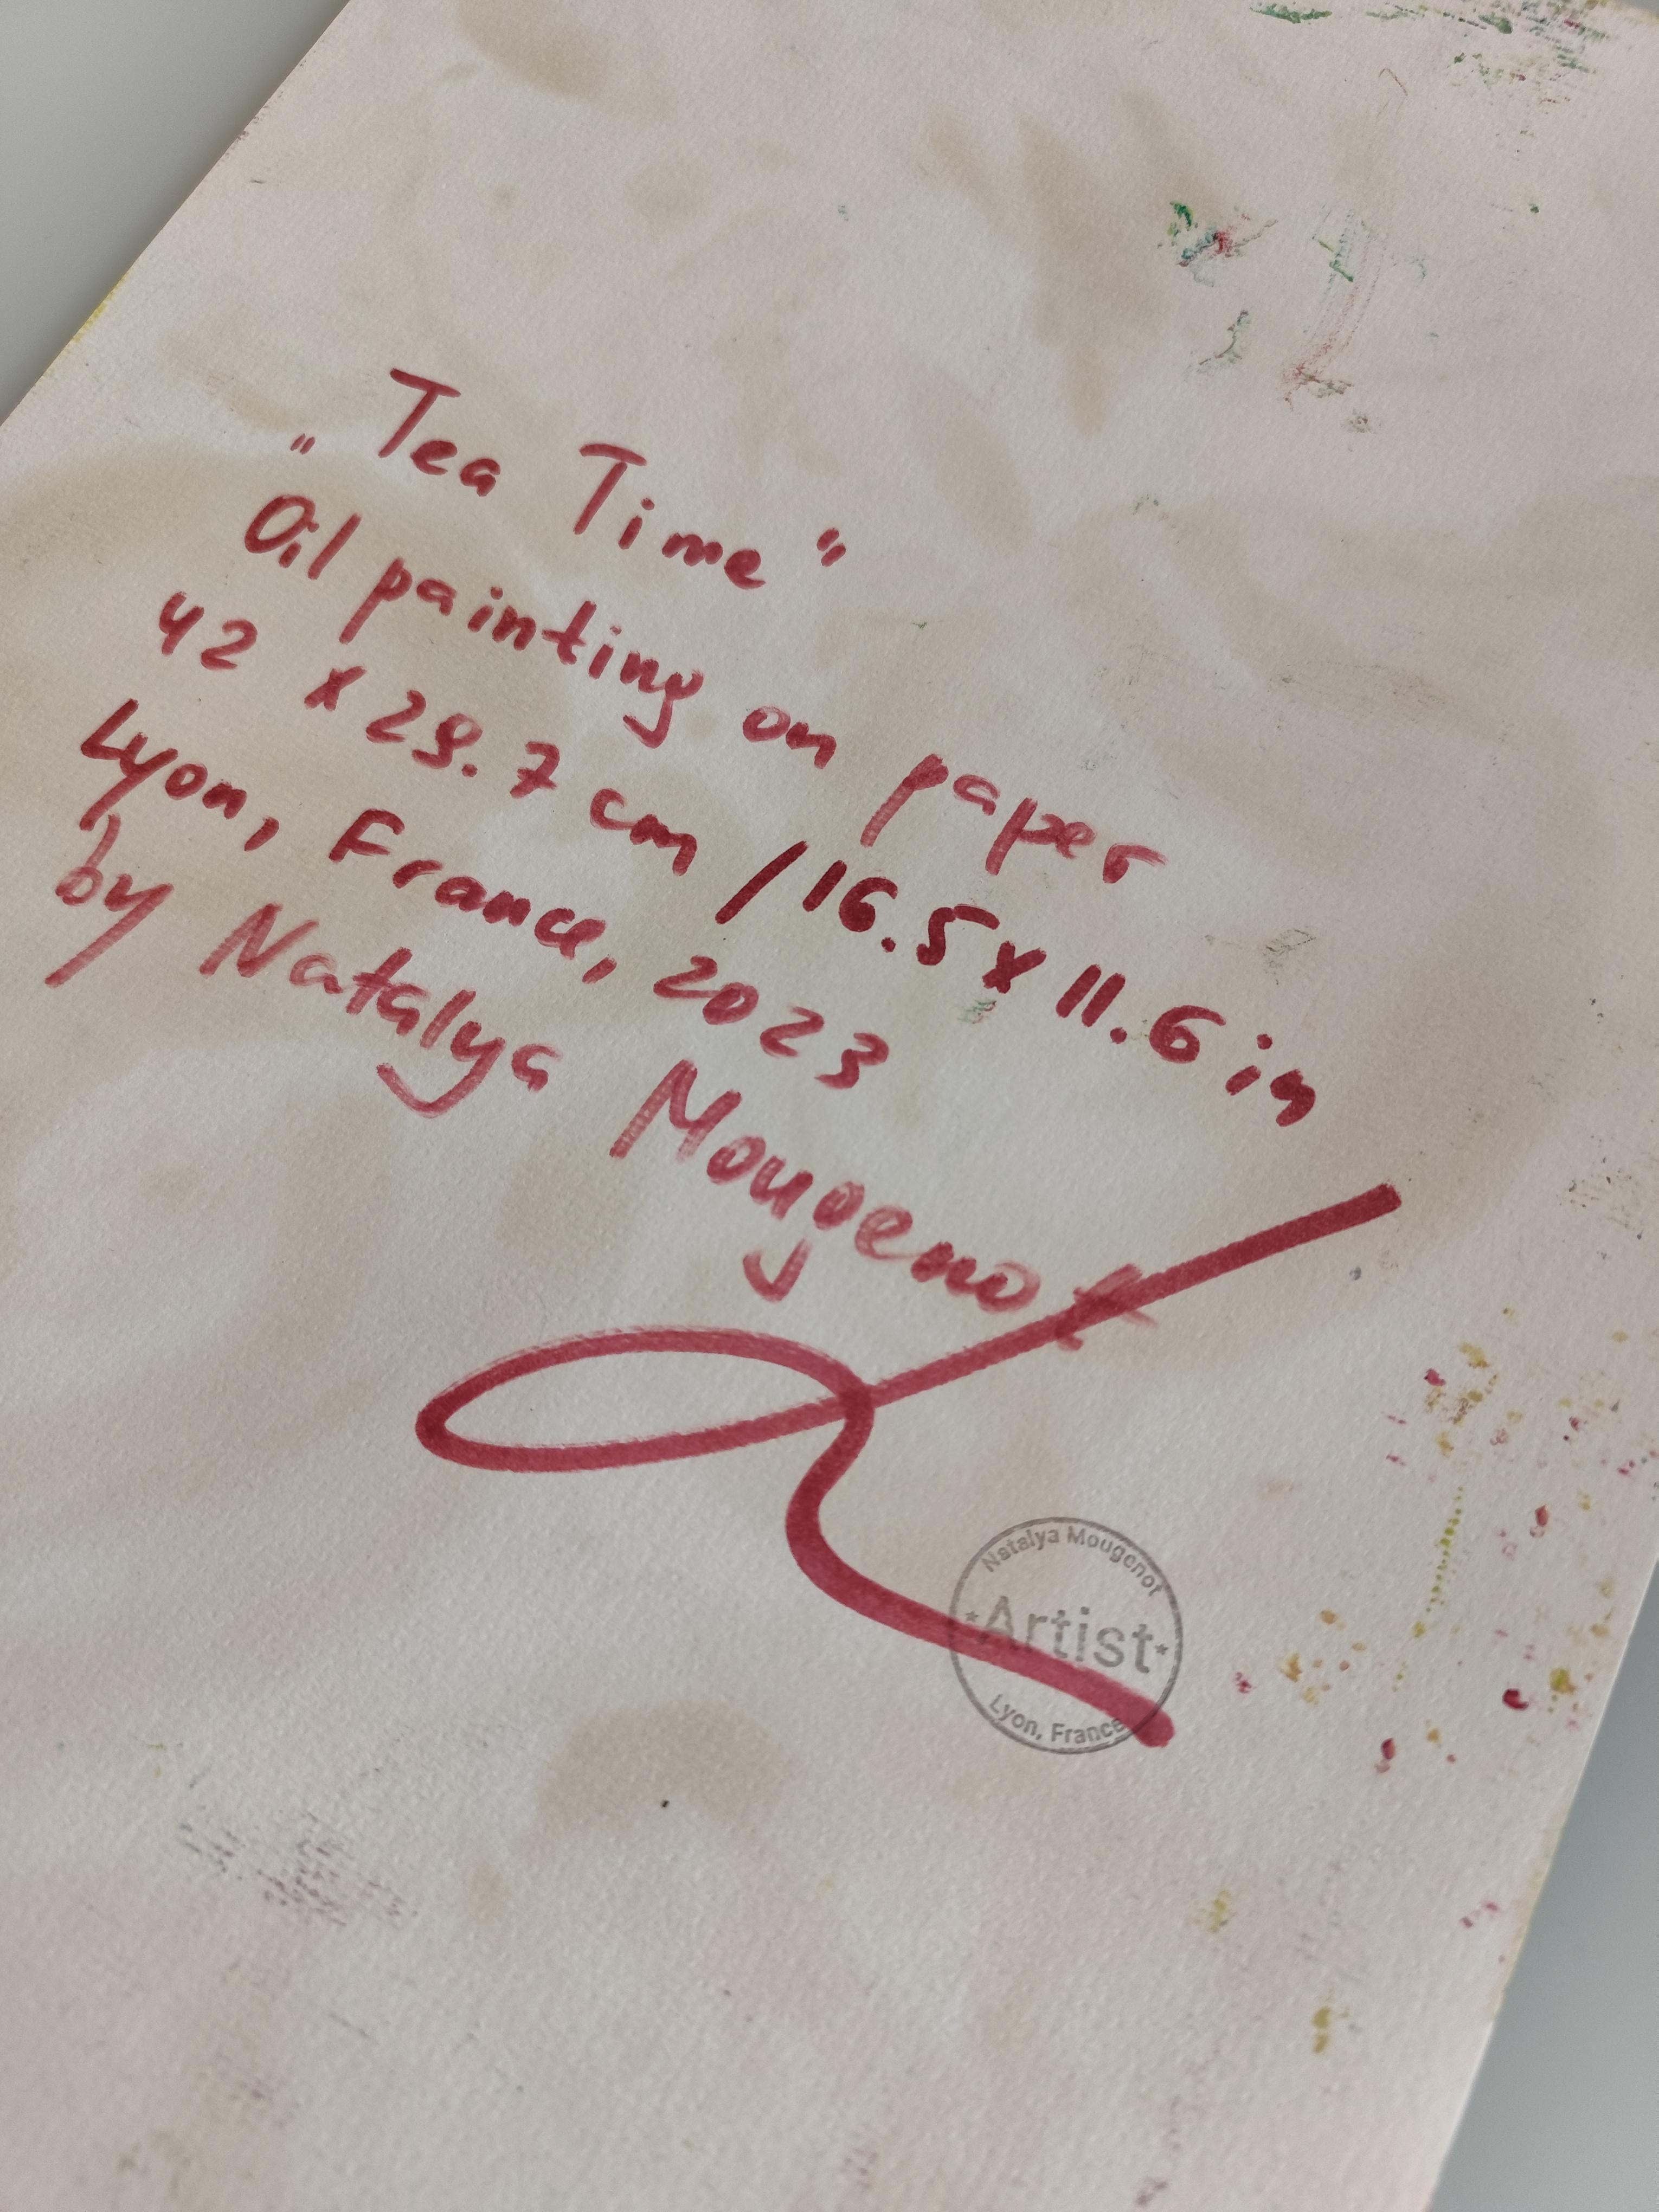 „Tea Time“
Oil painting on paper
42 x 29.7 cm / 16.5 x 11.6 in
Lyon, France, 2023
by Natalya Mougenot
Natalya Mougenot
Artist
Lyon, France